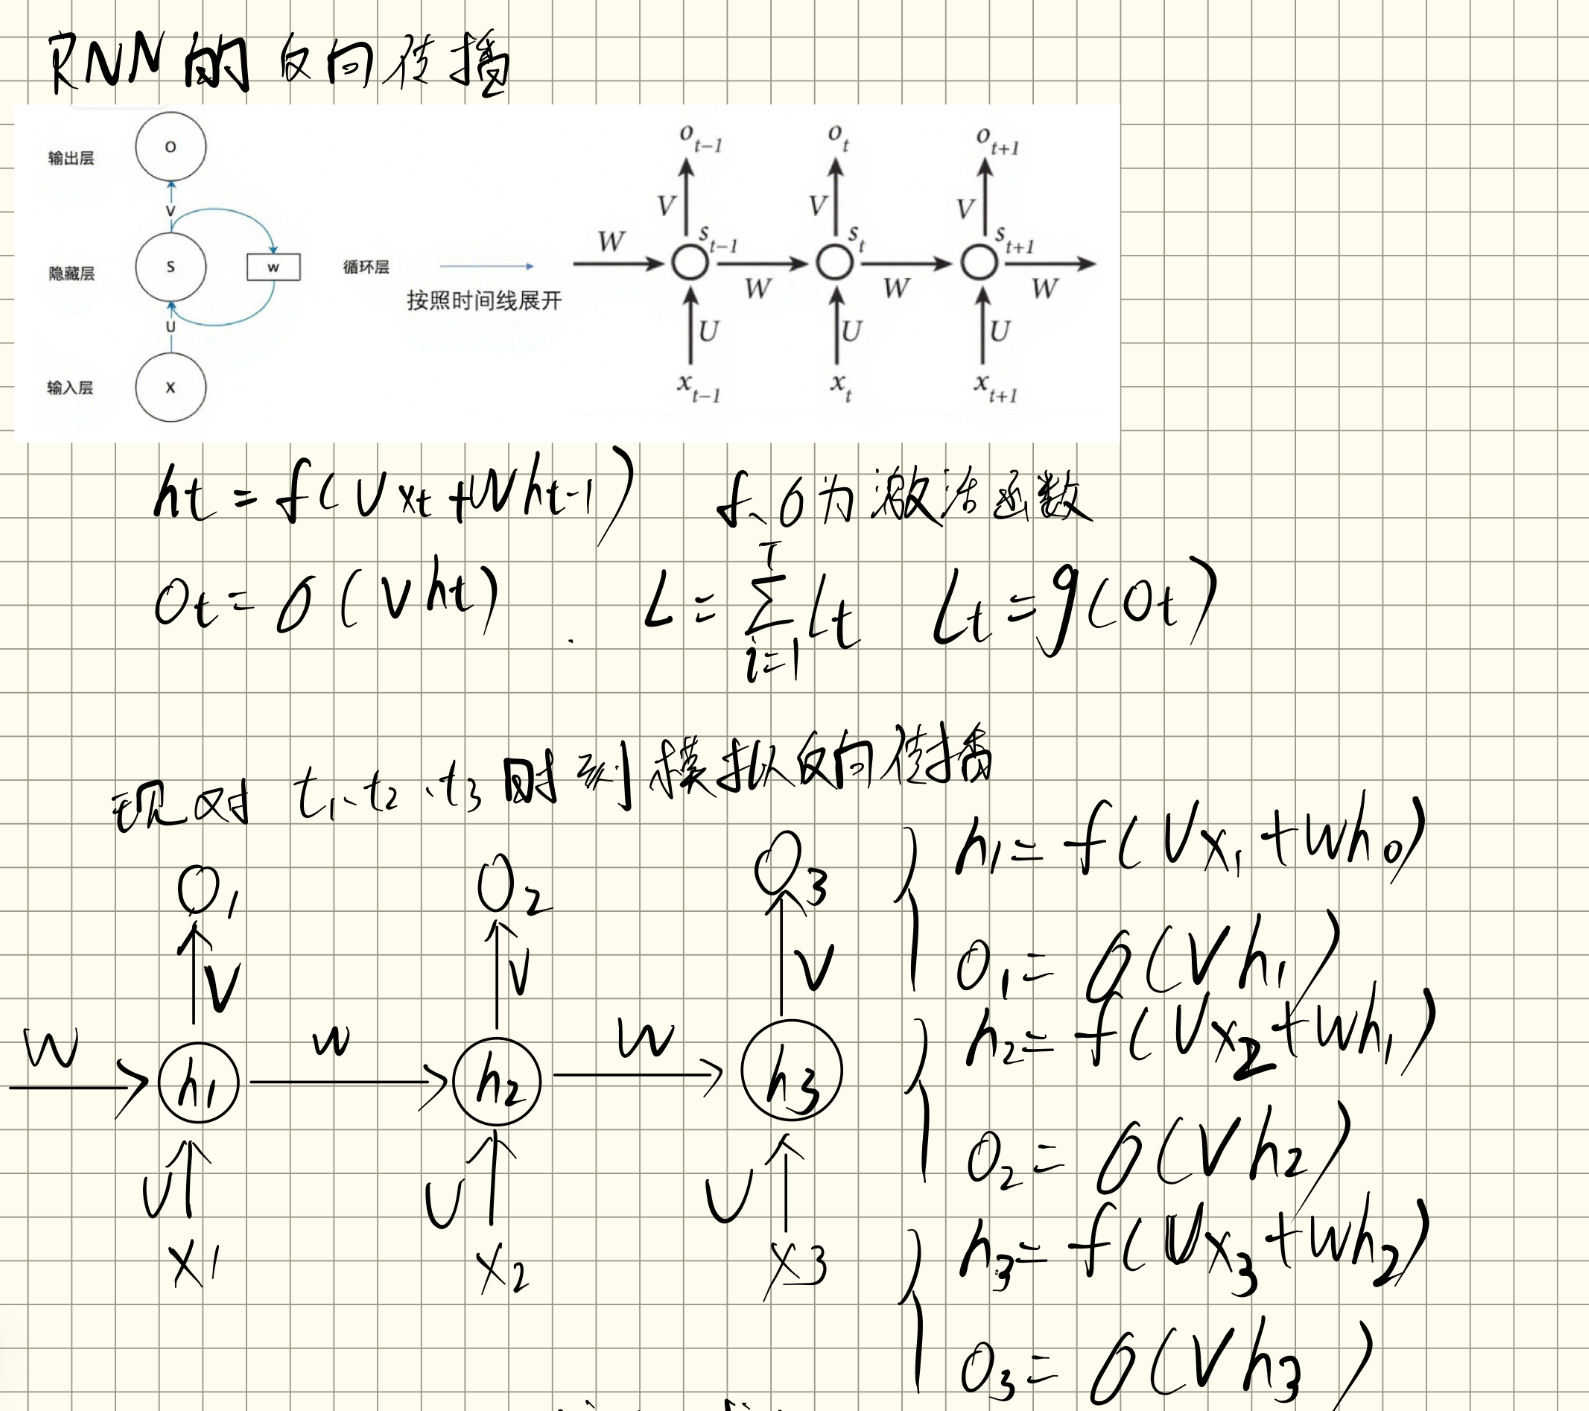 RNN的反向传播
O
输出层
V
S
隐藏层
W
循环层
按照时间线展开
U
X
输入层
o t-1 o t o t+1
V V V
W s t-1 s t s t+1
W W W
U U U
x t-1 x t x t+1
ht = f(Uxt+Wht-1) f、σ为激活函数
Ot = σ(Vht) L = Σ T i=1 Lt Lt = g(Ot)
现对 t1、t2、t3时刻模拟反向传播
O1 O2 O3
V V V
W W W
h1 h2 h3
U U U
X1 X2 X3
h1 = f(Ux1+Wh0)
O1 = σ(Vh1)
h2 = f(Ux2+Wh1)
O2 = σ(Vh2)
h3 = f(Ux3+Wh2)
O3 = σ(Vh3)